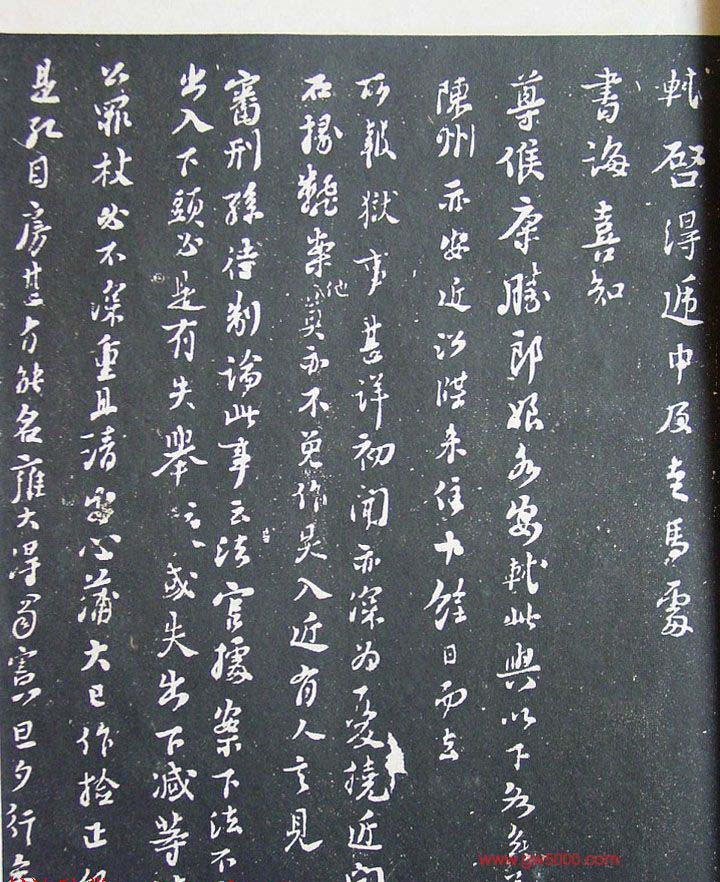 軾啓得遞中及走馬處
書誨喜知
尊候康勝郎娘各安軾此與以下各無
陳州亦安近沿牒來住十餘日而去
所報獄事甚詳初聞亦深為憂撓近聞
石掾難案他莫亦不免作失入近有人言見
審刑孫待制論此事云法官據案下法不
出入下頭必是有失舉云云或失出下減等
公罪杖必不深重且請寬心蒲大已作檢正
是孔目房甚有能名雍大得蜀憲旦夕行
www.gw5000.com